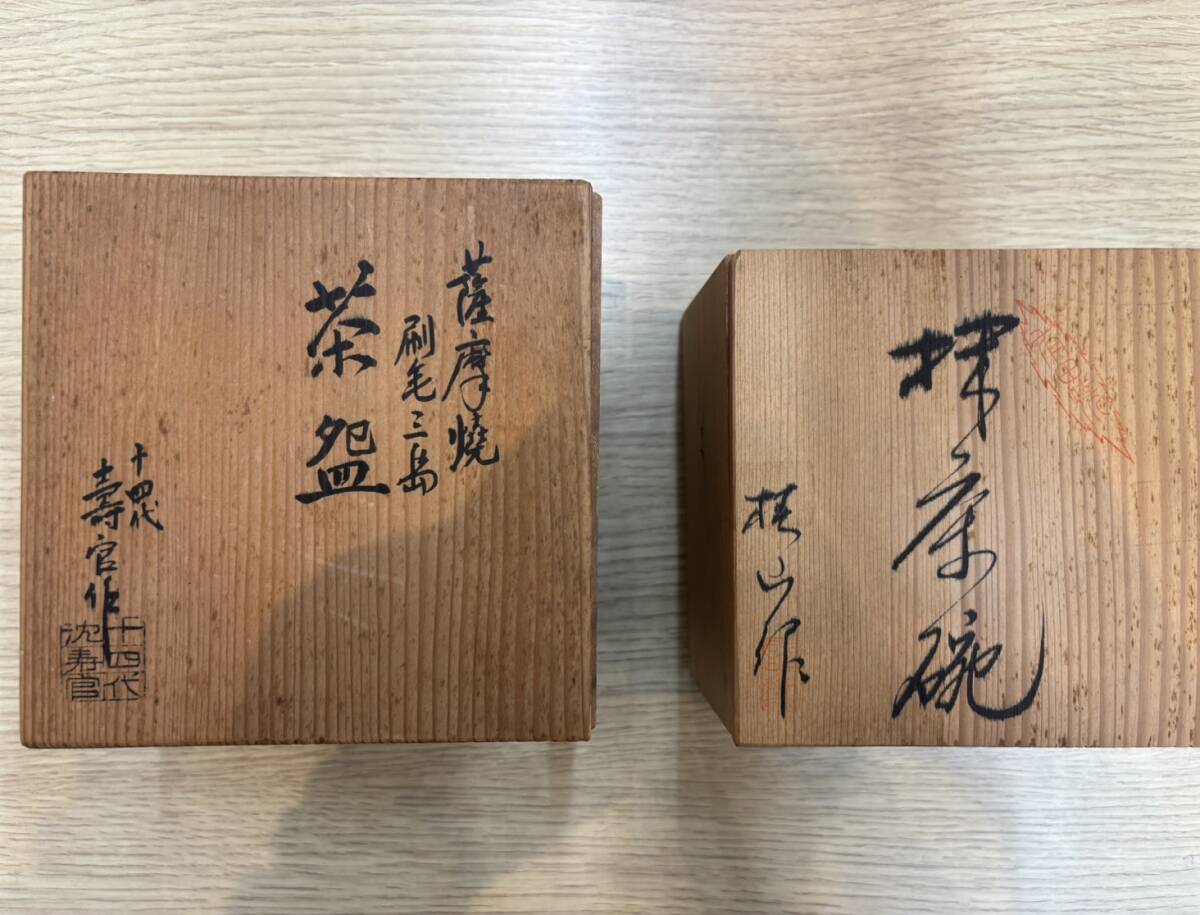 薩摩燒
刷毛三島
茶盌
十四代
壽官作
十四代
沈寿官
抹茶碗
山作